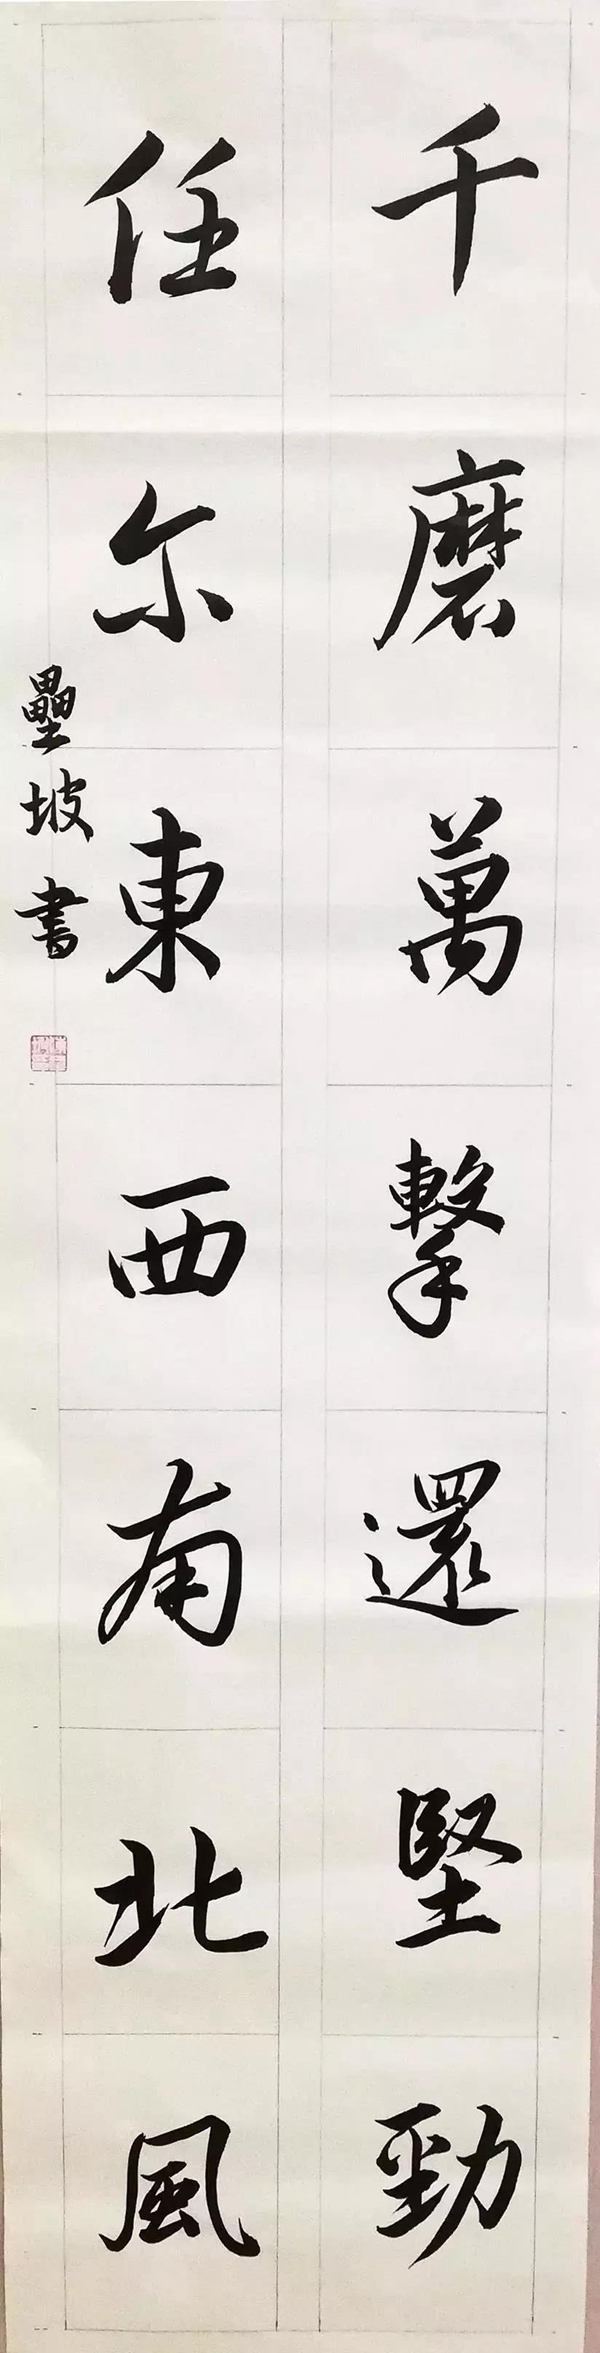 千磨萬擊還堅勁
任尔東西南北風
壘坡書